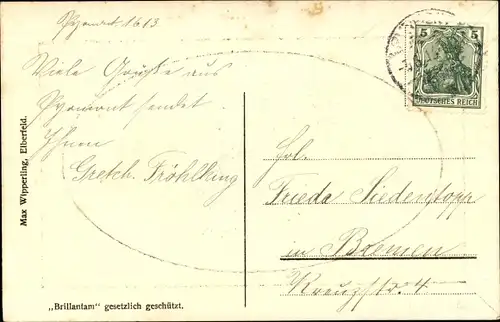 Pyrmont. 16.13
Viele Grüße aus
Pyrmont sendet
Ihnen
Gretch. Fröhlking
Max Wipperling, Elberfeld.
„Brillantam“ gesetzlich geschützt.
5 5
DEUTSCHES REICH
Frl.
Frieda Siedentopp
in Bremen
Kreuzstr. 4